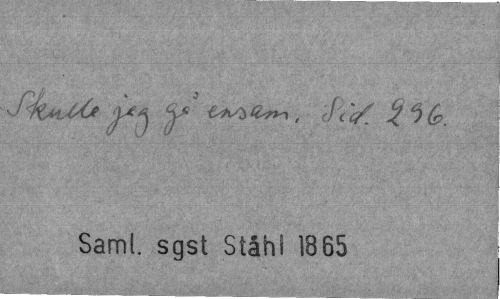 Skulle jag gå ensam. Sid. 296.
Saml. sgst Ståhl 1865